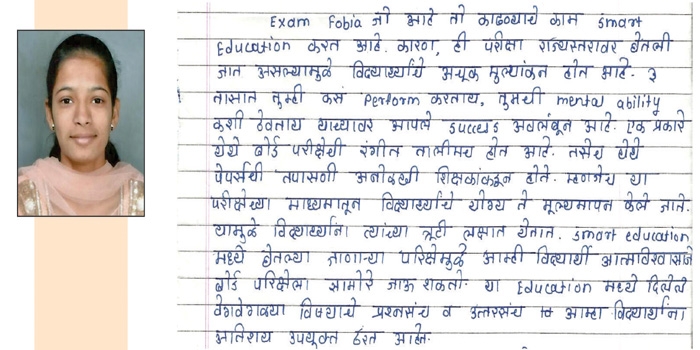 Exam Fobia जो आहे तो काढण्याचे काम smart
Education करत आहे. कारण, ही परीक्षा राज्यस्तरावर घेतली
जात असल्यामुळे विद्यार्थ्यांचे अचूक मुल्यांकन होत आहे. ३
तासात तुम्ही कसं Perform करताय, तुमची mental ability
कशी ठेवताय याच्यावर आपले success अवलंबून आहे. एक प्रकारे
येथे बोर्ड परीक्षेची रंगीत तालीमच होत आहे. तसेच येथे
पेपर्सची तपासणी अनोळखी शिक्षकांकडून होते. म्हणजेच या
परीक्षेच्या माध्यमातून विद्यार्थ्यांचे योग्य ते मूल्यमापन केले जाते.
यामुळे विद्यार्थ्यांना त्यांच्या त्रूटी लक्षात येतात. smart education
मध्ये घेतल्या जाणाऱ्या परिक्षेमुळे आम्ही विद्यार्थी आत्मविश्वासाने
बोर्ड परिक्षेला सामोरे जाऊ शकतो. या Education मध्ये दिलेले
वेगवेगळ्या विषयाचे प्रश्नसंच व उत्तरसंच आम्हा विद्यार्थ्यांना
अतिशय उपयुक्त ठरत आहेत.